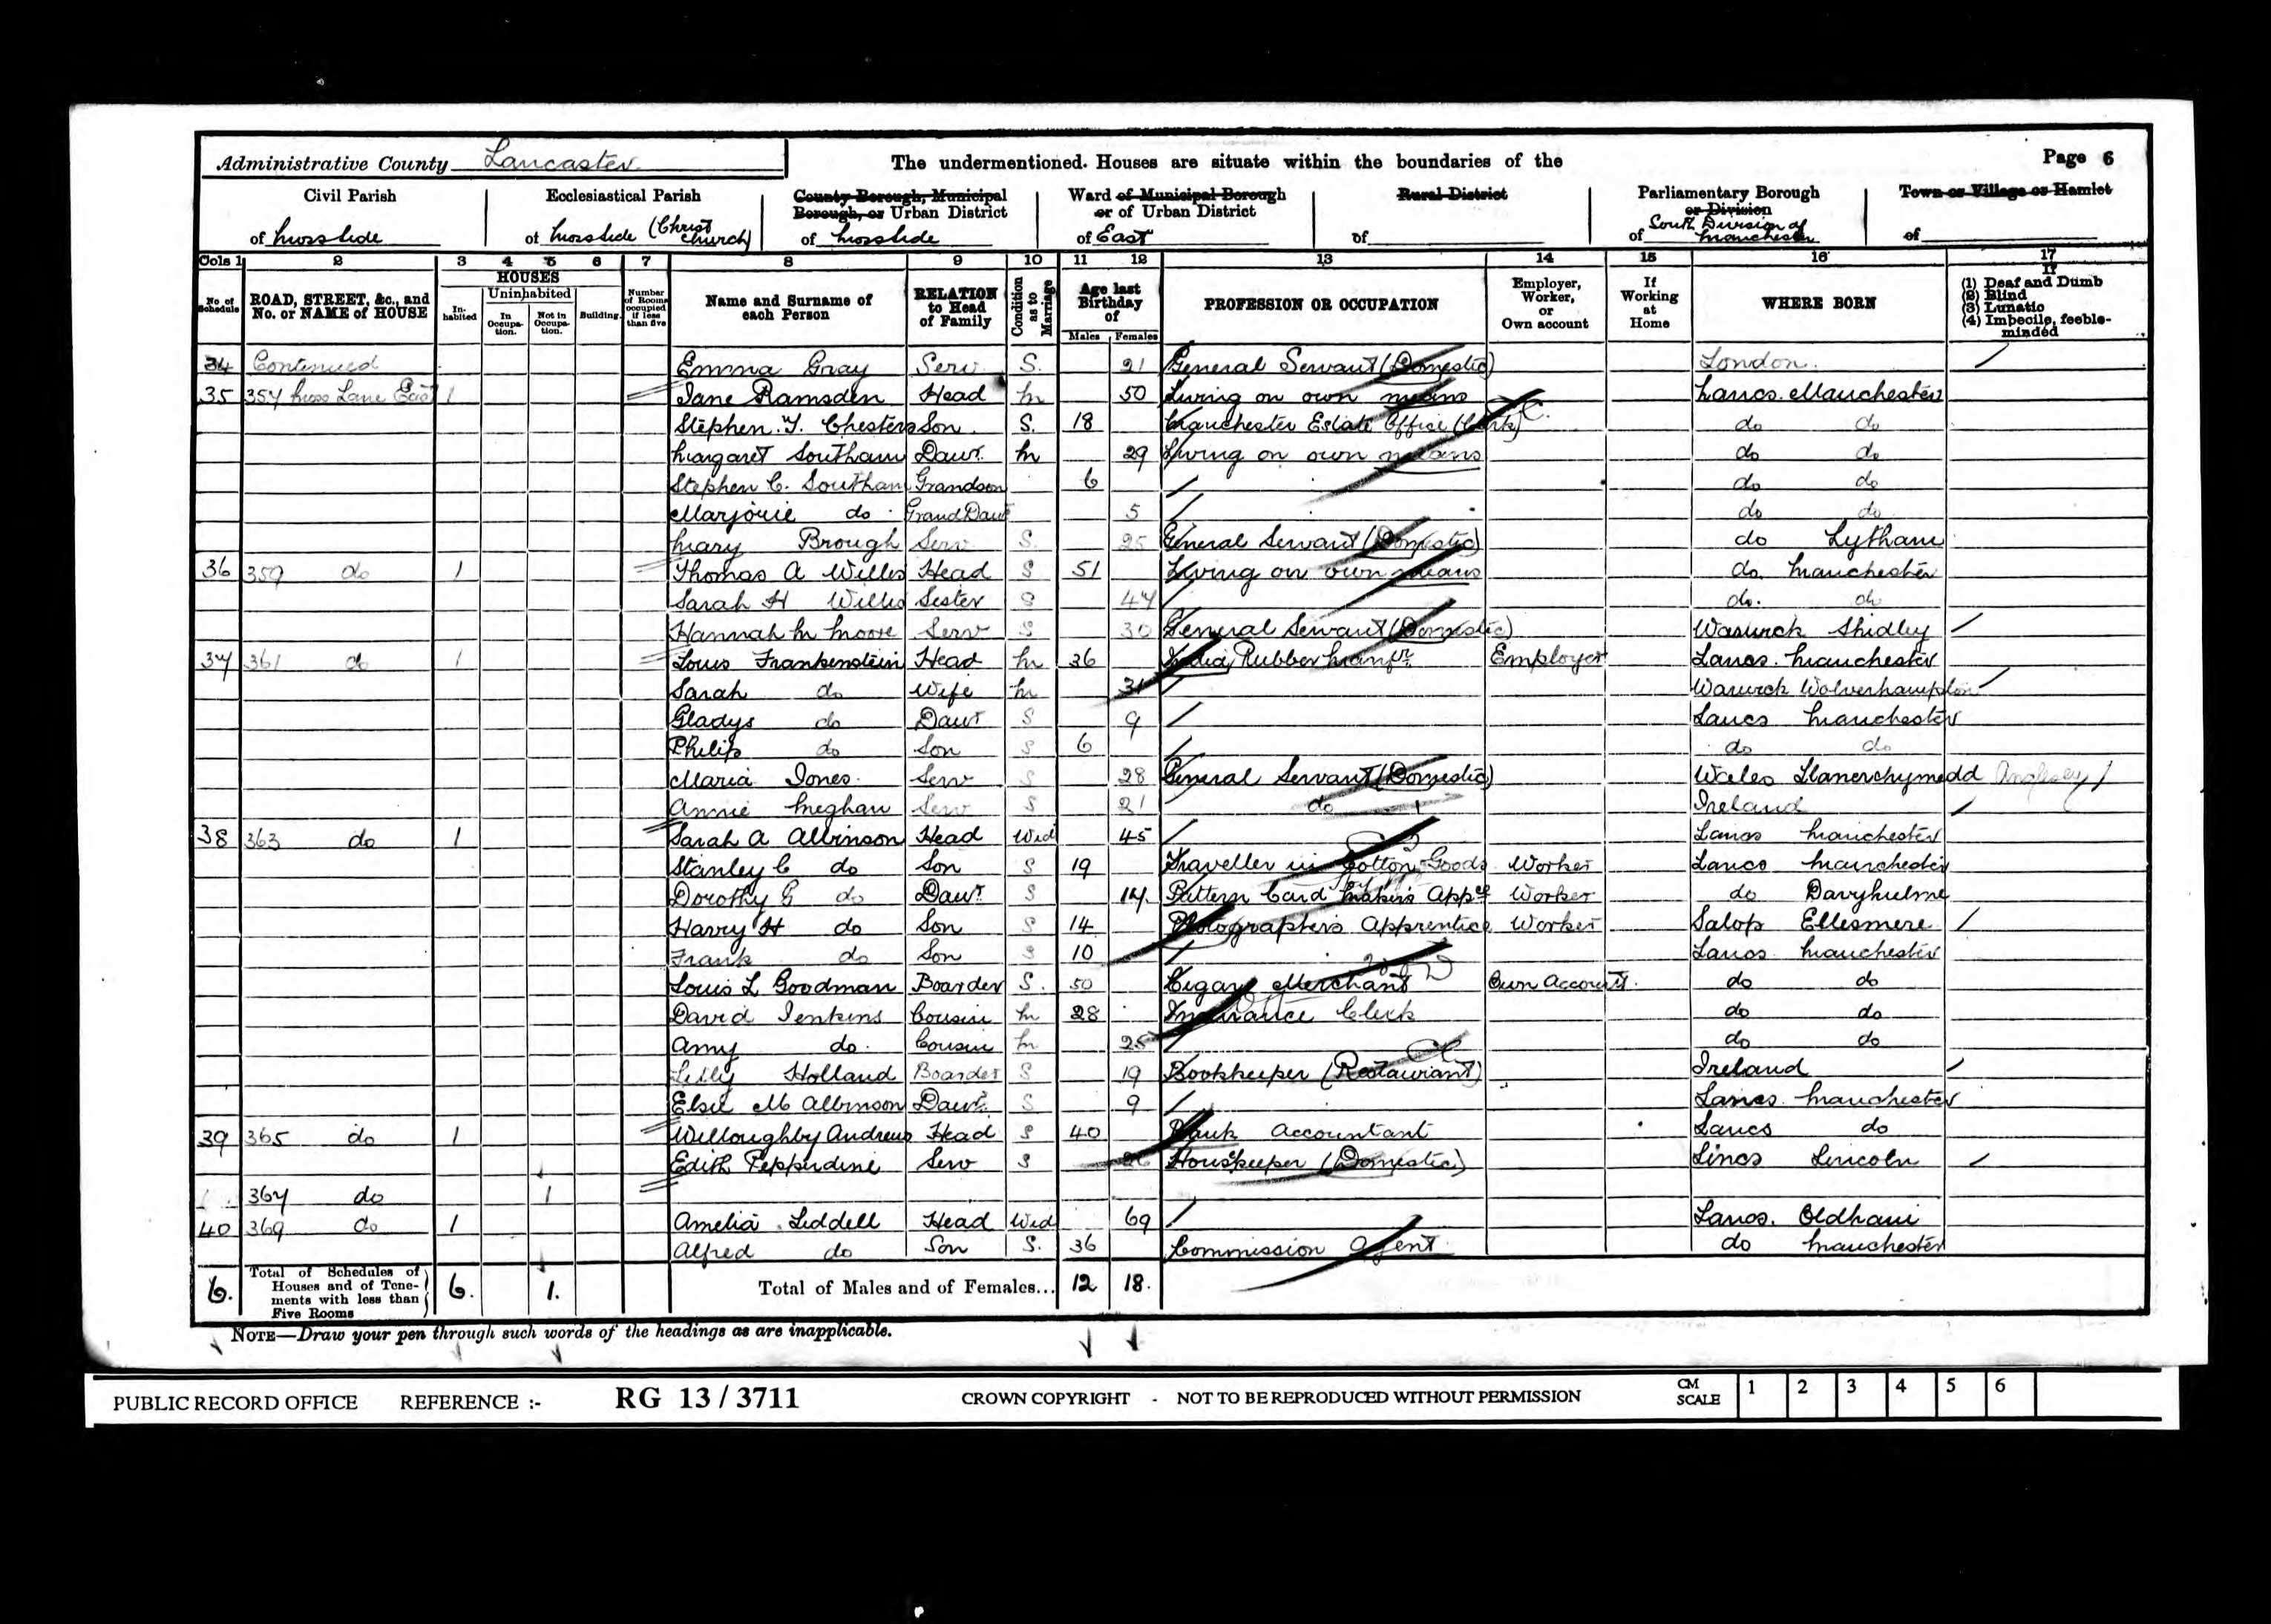 Administrative County Lancaster
The undermentioned Houses are situate within the boundaries of the
Page 6
Civil Parish of Mossside
Ecclesiastical Parish of Mossside (Christ Church)
County Borough, Municipal Borough, or Urban District of Mossside
Ward of Municipal Borough or of Urban District of East
Rural District of
Parliamentary Borough or Division of South Division of Manchester
Town or Village or Hamlet of
Cols 1 2 3 4 5 6 7 8 9 10 11 12 13 14 15 16 17
No of Schedule
ROAD, STREET, &c., and No. or NAME of HOUSE
HOUSES
In-habited
Uninhabited
In Occupa-tion.
Not in Occupa-tion.
Building.
Number of Rooms occupied if less than five
Name and Surname of each Person
RELATION to Head of Family
Condition as to Marriage
Age last Birthday of
Males Females
PROFESSION OR OCCUPATION
Employer, Worker, or Own account
If Working at Home
WHERE BORN
If
(1) Deaf and Dumb
(2) Blind
(3) Lunatic
(4) Imbecile, feeble-minded
34 Continued Emma Gray Serv S. 21 General Servant (Domestic) London
35 357 Moss Lane East 1 Jane Ramsden Head M 50 Living on own means Lancs. Manchester
Stephen. Y. Chesters Son S. 18 Manchester Estate Office (Clerk) do do
Margaret Southam Daur. M 29 Living on own means do do
Stephen C. Southam Grandson 6 do do
Marjorie do Grand Daur 5 do do
Mary Brough Serv S. 25 General Servant (Domestic) do Lytham
36 359 do 1 Thomas A Willis Head S 51 Living on own means do. Manchester
Sarah H Willis Sister S 47 do. do
Hannah M Moore Serv S 30 General Servant (Domestic) Warwick Shidley
37 361 do 1 Louis Frankenstein Head M 36 India Rubber Manfr. Employer Lancs. Manchester
Sarah do Wife M 31 Warwick Wolverhampton
Gladys do Daur S 9 Lancs Manchester
Philip do Son S 6 do do
Maria Jones Serv S 28 General Servant (Domestic) Wales Llanerchymedd Anglesey
Annie Meghan Serv S 21 do Ireland
38 363 do 1 Sarah A Albinson Head Wid 45 Lancs Manchester
Stanley C do Son S 19 Traveller in Cotton Goods Worker Lancs Manchester
Dorothy G do Daur. S 17. Pattern Card Makers Appce Worker do Davyhulme
Harry H do Son S 14 Photographers Apprentice Worker Salop Ellesmere
Frank do Son S 10 Lancs Manchester
Louis L Goodman Boarder S. 50 Cigar Merchant Own Account. do do
David Jenkins Cousin M 28 Insurance Clerk do do
Amy do Cousin M 25 do do
Lilly Holland Boarder S 19 Bookkeeper (Restaurant) Ireland
Elsie M Albinson Daur. S 9 Lancs. Manchester
39 365 do 1 Willoughby Andrews Head S 40 Bank Accountant Lancs do
Edith Pepperdine Serv S 26 Housekeeper (Domestic) Lincs Lincoln
367 do 1
40 369 do 1 Amelia Liddell Head Wid 69 Lancs. Oldham
Alfred do Son S. 36 Commission Agent do Manchester
6. Total of Schedules of Houses and of Tene-ments with less than Five Rooms 6. 1. Total of Males and of Females... 12 18.
NOTE—Draw your pen through such words of the headings as are inapplicable.
PUBLIC RECORD OFFICE REFERENCE :- RG 13 / 3711 CROWN COPYRIGHT - NOT TO BE REPRODUCED WITHOUT PERMISSION CM SCALE 1 2 3 4 5 6